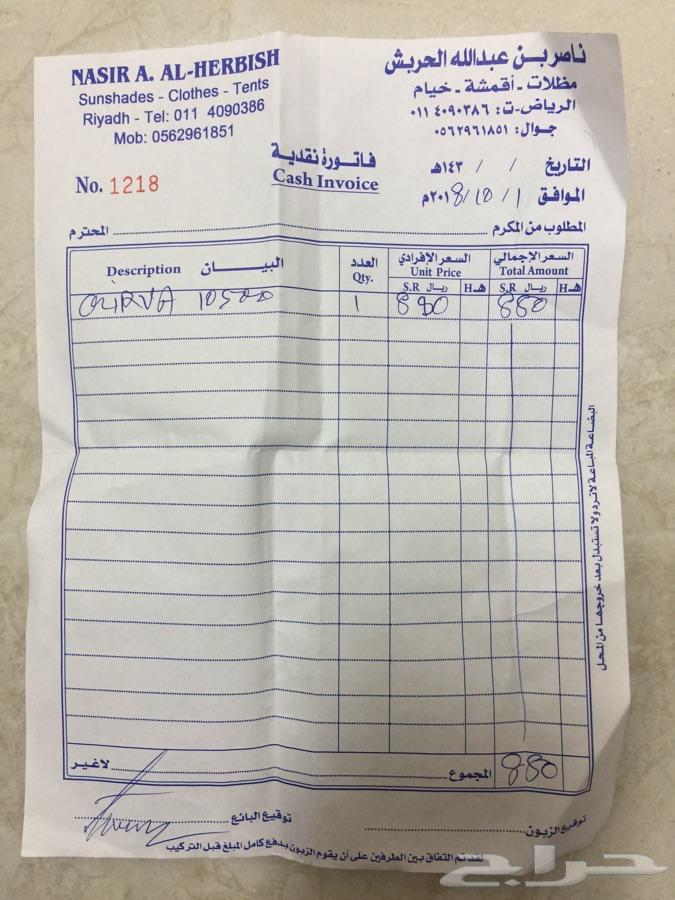 NASIR A. AL-HERBISH
Sunshades - Clothes - Tents
Riyadh - Tel: 011 4090386
Mob: 0562961851
ناصر بن عبدالله الحربش
مظلات - أقمشة - خيام
الرياض - ت: ٠١١ ٤٠٩٠٣٨٦
جوال: ٠٥٦٢٩٦١٨٥١
فاتورة نقدية
Cash Invoice
No. 1218
التاريخ / / ١٤٣هـ
الموافق 1/10/٢٠١8م
المطلوب من المكرم المحترم
Description البيـــان العدد Qty. السعر الإفرادي Unit Price السعر الإجمالي Total Amount
S.R ريال H هـ S.R ريال H هـ
10500 1 880 880
المجموع لاغير 880
توقيع البائع
توقيع الزبون
لقد تم التفاق بين الطرفين على أن يقوم الزبون بدفع كامل المبلغ قبل التركيب
البضاعة المباعة لا ترد ولا تستبدل بعد خروجها من المحل
حراج